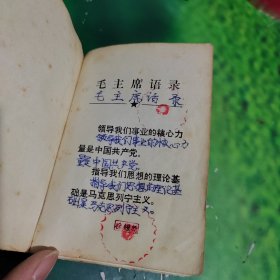 毛主席语录
毛主席语录
领导我们事业的核心力
领导我们事业的核心力
量是中国共产党。
量是中国共产党
指导我们思想的理论基
指导我们思想的理论基
础是马克思列宁主义。
础是马克思列宁主义。